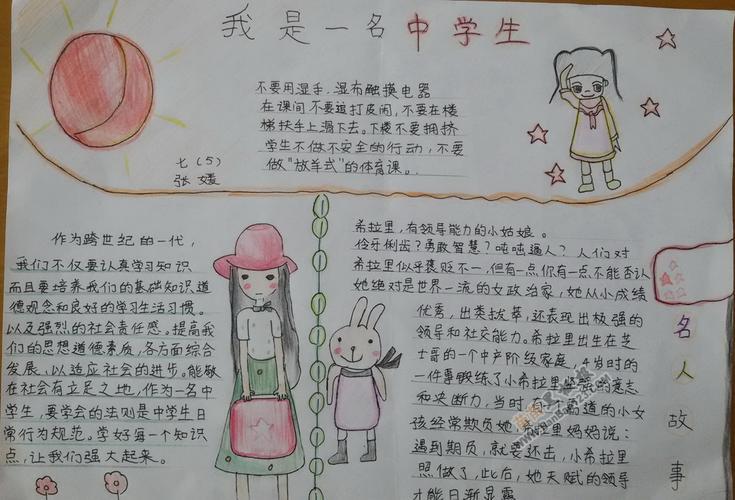 我是一名中学生
不要用湿手、湿布触摸电器
在课间不要追打皮闹,不要在楼
梯扶手上滑下去。下楼不要拥挤
学生不做不安全的行动,不要
做"放羊式"的体育课。
七(5)
张媛
作为跨世纪的一代,
我们不仅要认真学习知识
而且要培养我们的基础知识道
德观念和良好的学习生活习惯。
以及强烈的社会责任感。提高我
们的思想道德素质,各方面综合
发展,以适应社会的进步。能够
在社会有立足之地,作为一名中
学生,要学会的法则是中学生日
常行为规范。学好每一个知识
点,让我们强大起来。
希拉里,有领导能力的小姑娘。
伶牙俐齿?勇敢智慧?咄咄逼人?人们对
希拉里似乎褒贬不一,但有一点你有一点不能否认
她绝对是世界一流的女政治家,她从小成绩
优秀,出类拔萃,还表现出极强的
领导和社交能力。希拉里出生在芝
士哥的一个中产阶级家庭,4岁时的
一件事锻练了小希拉里坚强的意志
和决断力,当时有一霸道的小女
孩经常欺负她,希里妈妈说:
遇到期负,就要还击,小希拉里
照做了,此后,她天赋的领导
才能日渐显露
名人故事